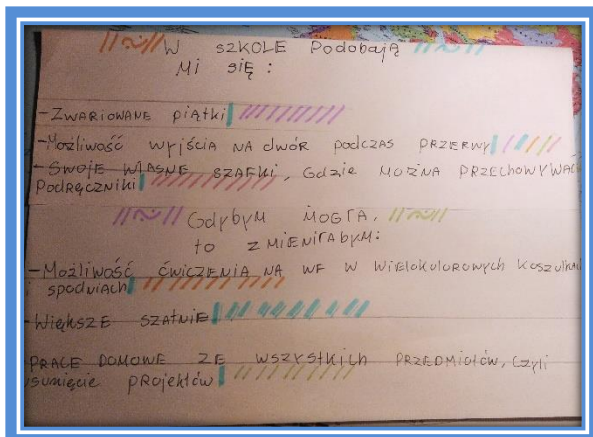 W SZKOLE Podobają
Mi SIĘ:
- ZWARIOWANE piĄtki
- Możliwość wyjścia NA dwór podczas PRZERWY
- Swoje WŁASNE SZAFKI, Gdzie MOŻNA PRZECHOWYWAĆ
Podręczniki
Gdybym MOGŁA,
to ZMIENIŁAbyM:
- Możliwość ćwiczENIA NA WF W WIElokolorowych koszulkach
i spodniach
- Większe szatnie
PRACE DOMOWE ZE WSZYStkich PRZEDMIOtów, czyli
usunięcie PROjektów